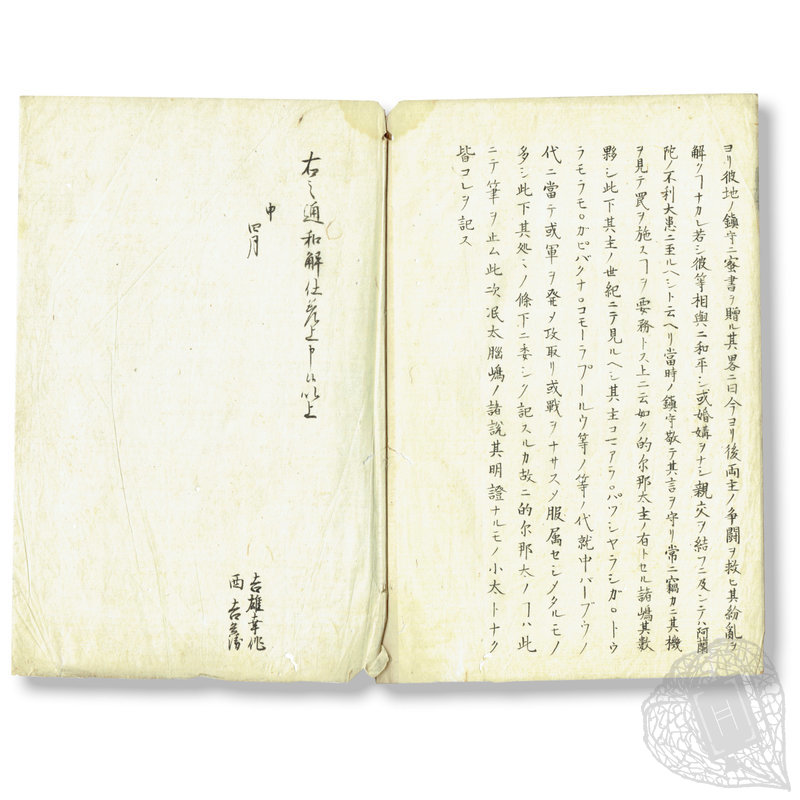 ヨリ彼地ノ鎮守ニ蜜書ヲ贈ル其畧ニ曰今ヨリ後両主ノ争闘ヲ救ヒ其紛亂ヲ
解クヿナカレ若シ彼等相與ニ和平シ或婚媾ヲナシ親交ヲ結フニ及ンテハ阿蘭
陀ノ不利大患ニ至ルヘシト云ヘリ當時ノ鎮守敬テ其言ヲ守リ常ニ竊カニ其機
ヲ見テ罠ヲ施スヿヲ要務トス上ニ云如ク的尔那太主ノ有トセル諸嶋其数
夥シ此下其主ノ世紀ニテ見ルヘシ其主コセアラ。パツシヤラシガ。トウ
ラモラモロガピバクナ。コモーラプールウ等ノ等ノ代就中バーブウノ
代ニ當テ或軍ヲ發メ攻取リ或戦ヲナサスメ服属セシメタルモノ
多シ此下其処ミノ條下ニ委シク記スルカ故ニ的尔那太ノヿハ此
ニテ筆ヲ止ム此次泯太腦嶋ノ諸説其明證ナルモノ小太トナク
皆コレヲ記ス
右之通和解仕差上申候以上
申
四月
吉雄幸作
西吉兵衛
H